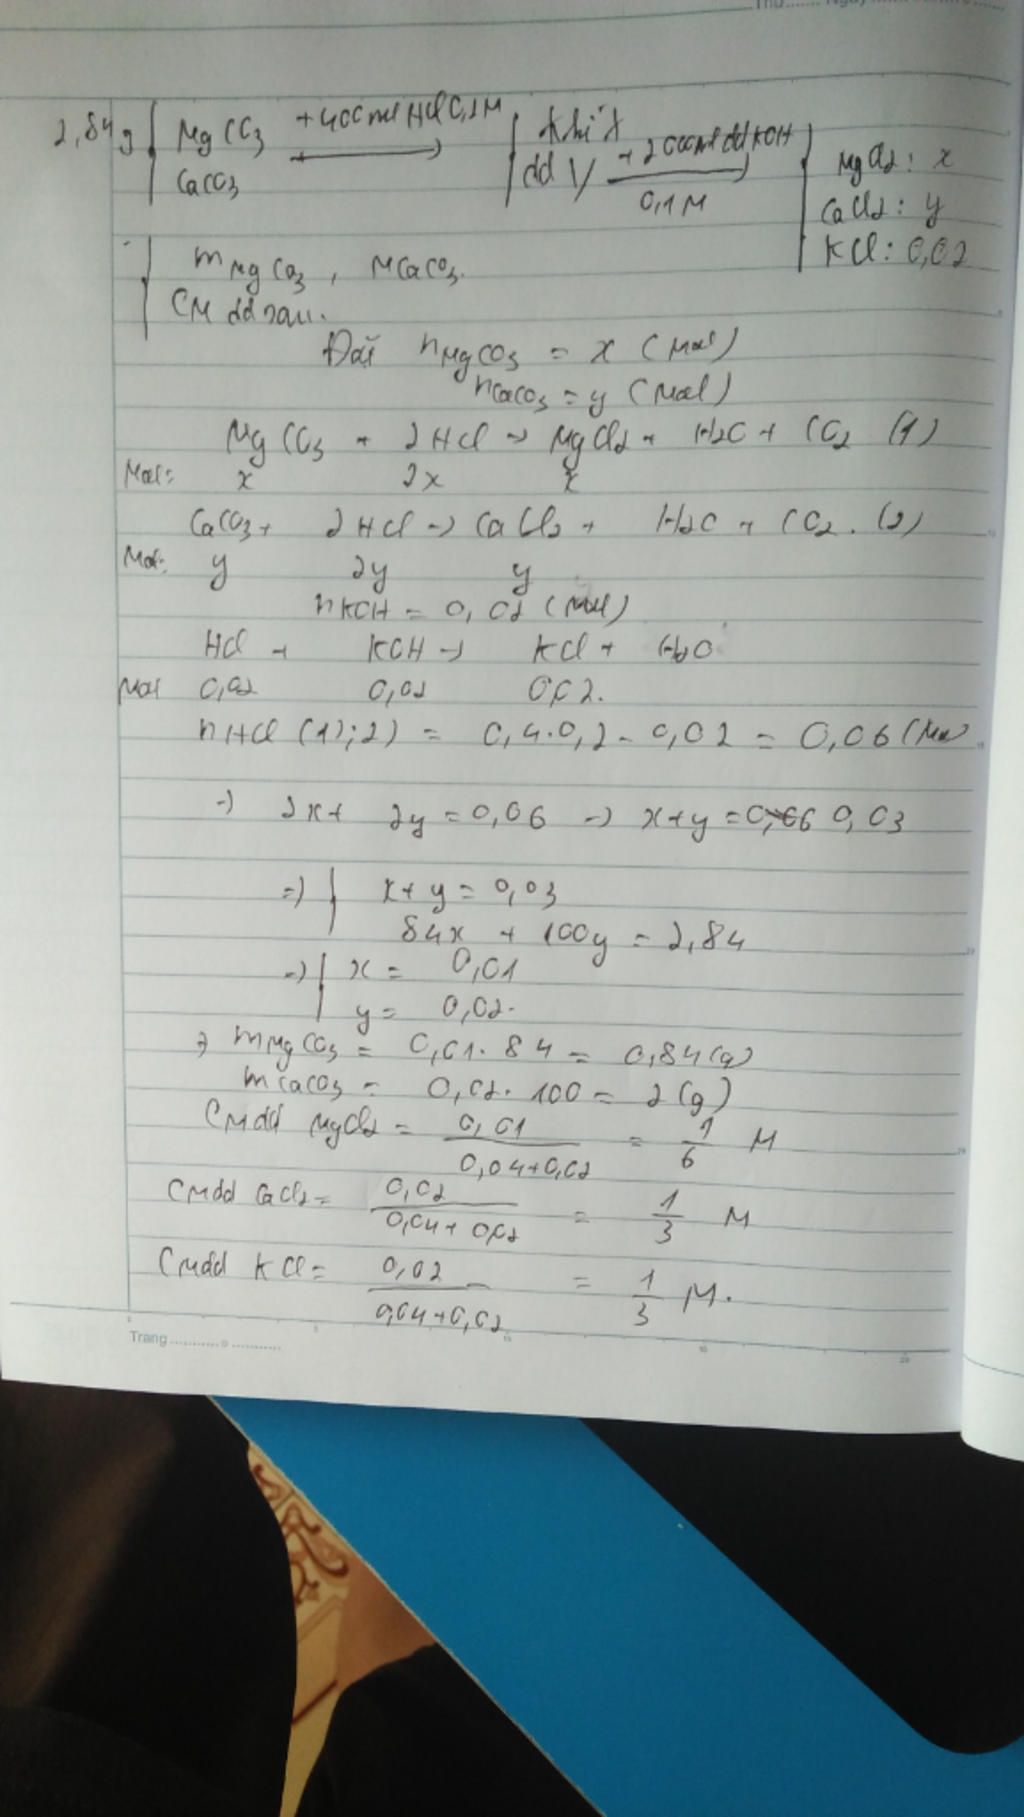 Thứ....... Ngày
2,84g MgCO3 +400ml HCl 0,2M Khí X
CaCO3 dd Y +200ml dd KOH 0,1M MgCl2: x
CaCl2: y
KCl: 0,02
mMgCO3, MCaCO3.
CM dd sau.
Đặt nMgCO3 = x (mol)
nCaCO3 = y (mol)
MgCO3 + 2HCl → MgCl2 + H2O + CO2 (1)
Mol: x 2x x
CaCO3 + 2HCl → CaCl2 + H2O + CO2. (2)
Mol: y 2y y
nKOH = 0,02 (mol)
HCl + KOH → KCl + H2O
Mol 0,02 0,02 0,02.
nHCl (1);2) = 0,4.0,2 - 0,02 = 0,06 (mol)
→ 2x + 2y = 0,06 → x+y = 0,03
=> x + y = 0,03
84x + 100y = 2,84
→ x = 0,01
y = 0,02.
→ mMgCO3 = 0,01.84 = 0,84(g)
mCaCO3 = 0,02.100 = 2(g)
CMdd MgCl2 = 0,01 / 0,04+0,02 = 1/6 M
CMdd CaCl2 = 0,02 / 0,04+0,02 = 1/3 M
CMdd KCl = 0,02 / 0,04+0,02 = 1/3 M.
Trang